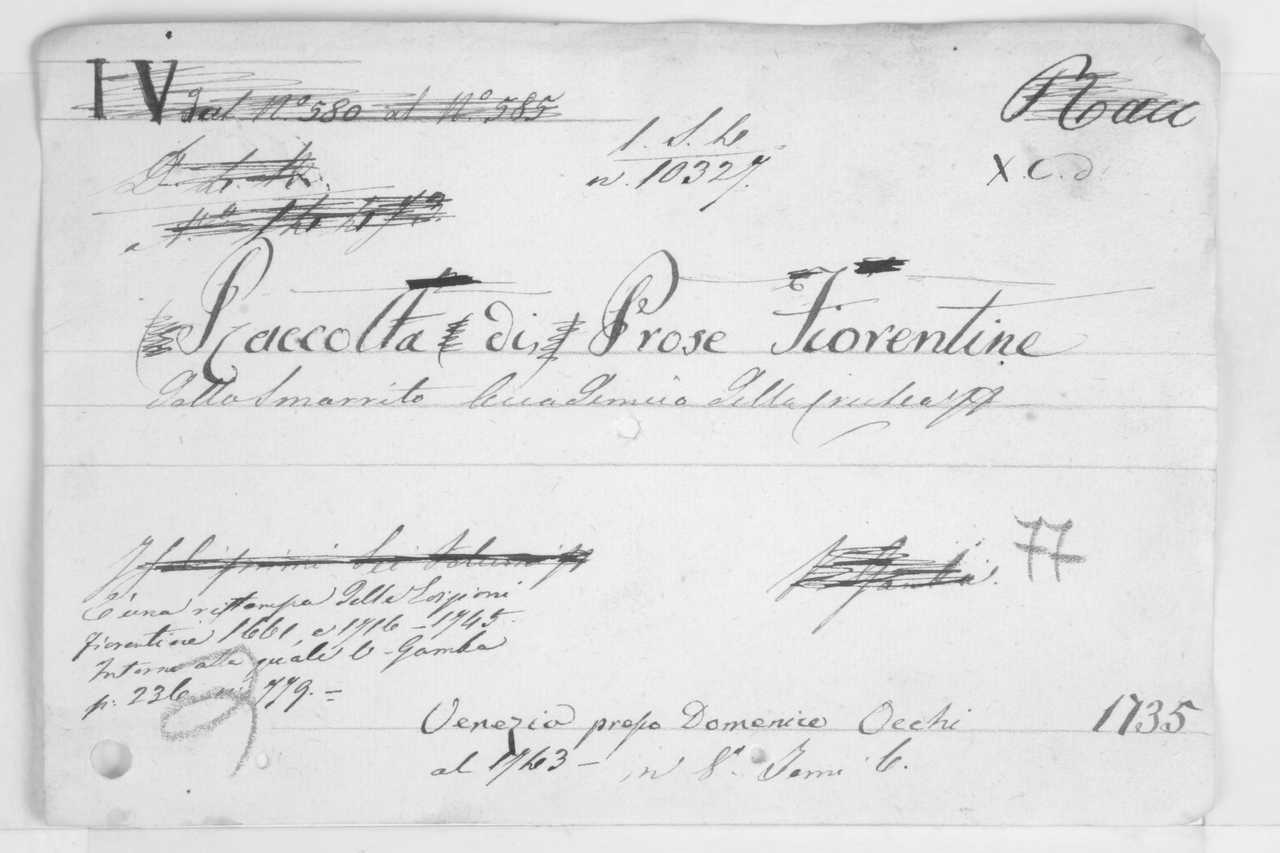 IV dal Nº 580 al Nº 585
Racc
1. S. 6
n. 10327.
X.C.d
Raccolta di Prose Fiorentine
dallo Smarrito Accademico della Crusca
77
i primi sei volumi
È una ristampa delle Edizioni
fiorentine 1661, e 1716 - 1745.
Intorno alla quale V. Gamba
p. 236 n. 779. =
Venezia presso Domenico Occhi 1735
al 1763 - in 8º Tomi 6.